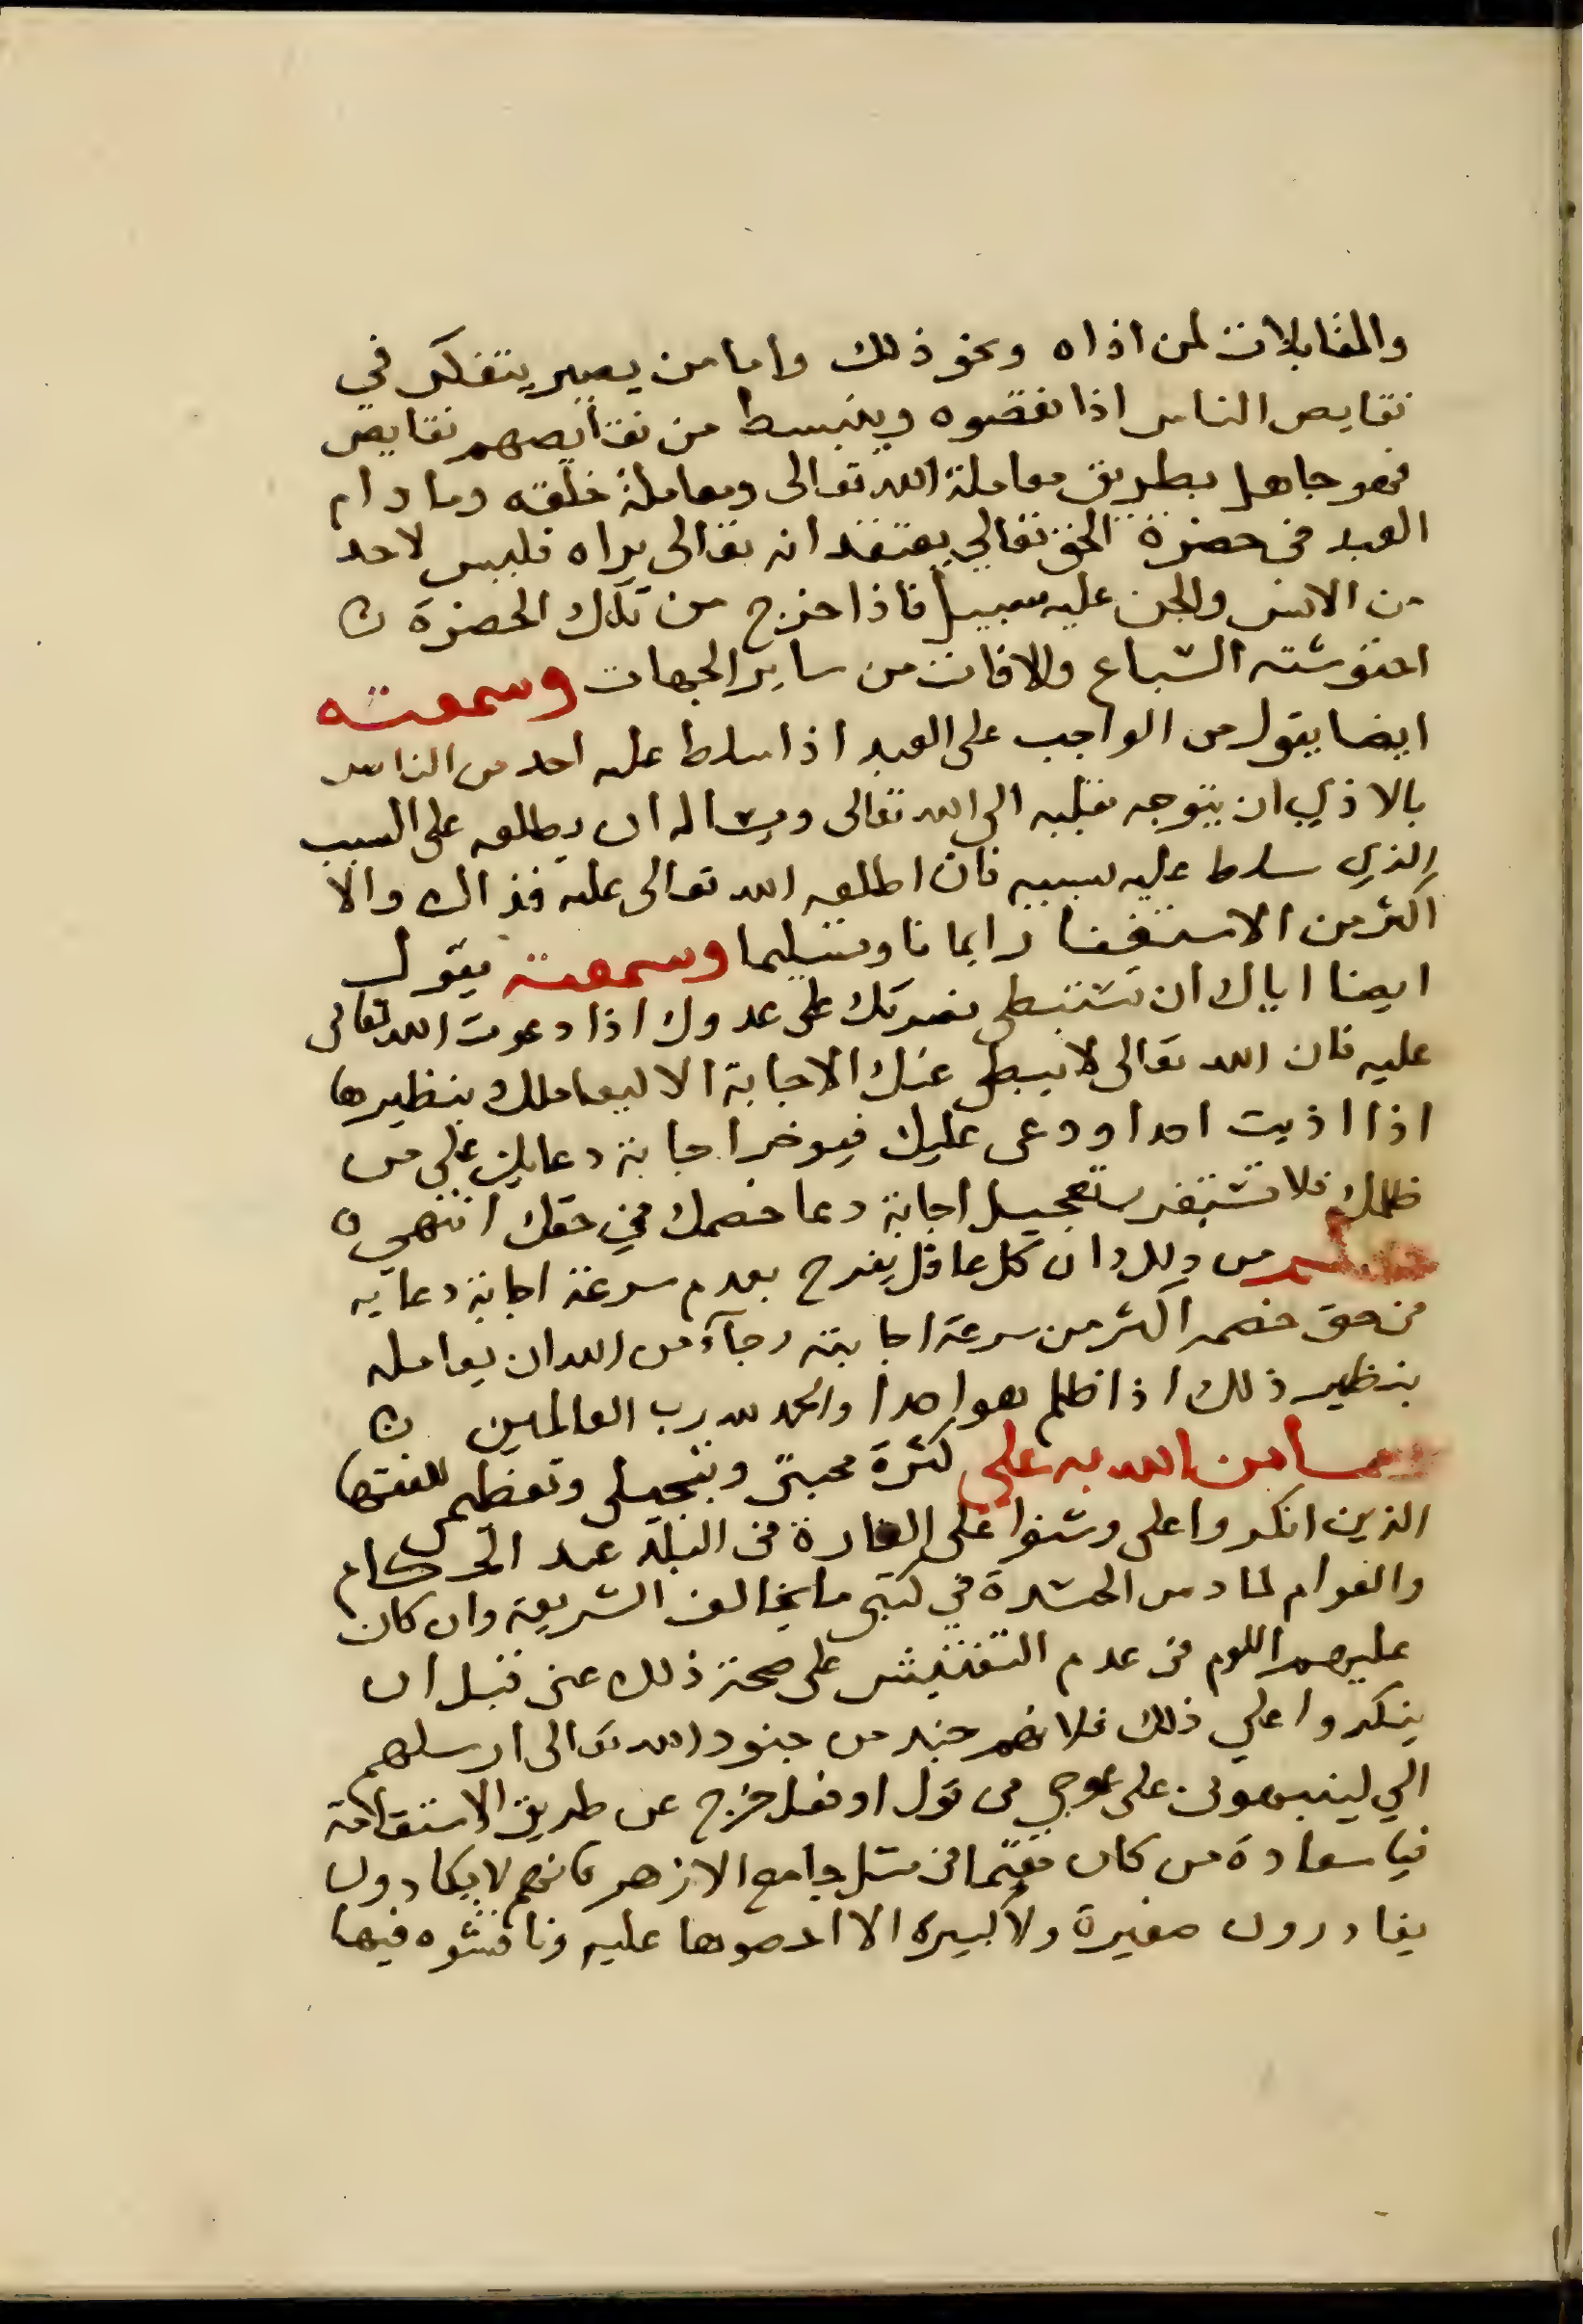 والمقابلات لمن اذاه ونحو ذلك واما من يصير يتفكر في
نقايص الناس اذا نقصوه وينبسط من نقائصهم نقايص
فهو جاهل بطريق معاملة الله تعالى ومعاملة خلقه وما دام
العبد في حضرة الحق تعالي يعتقد انه تعالى يراه فليس لاحد
من الانس والجن عليه سبيل فاذا خرج من تلك الحضرة
احتوشته السباع والافات من ساير الجهات وسمعته
ايضا يقول من الواجب على العبد اذا سلط عليه احد من الناس
بالاذي ان يتوجه بقلبه الى الله تعالى ويساله ان يطلعه على السبب
الذي سلط عليه بسببه فان اطلعه الله تعالى عليه فذاك والا
اكثر من الاستغفار ايمانا وتسليما وسمعته يقول
ايضا اياك ان تستبطى نصرتك على عدوك اذا دعوت الله تعالى
عليه فان الله تعالى لا يبطى عنك الاجابة الا ليعاملك بنظيرها
اذا اذيت احدا ودعى عليك فيوخر اجابة دعايك على من
ظلمك فلا تستفد بتعجيل اجابة دعا خصمك في حقك انتهي ه
من ذلك ان كل عاقل يفرح بعدم سرعة اجابة دعايه
في حق خصمه اكثر من سرعة اجابته رجآء من الله ان يعامله
بنظير ذلك اذا ظلم هو احدا والحمد لله رب العالمين
ومما من الله به على كثرة محبتى وتبجيلى وتعظيمى للفقها
الذين انكروا على وشنوا على الغارة في البلد عند الحكام
والعوام لما دس الحسدة في كتبى ما يخالف الشريعة وان كان
عليهم اللوم في عدم التفتيش على صحة ذلك عنى قبل ان
ينكروا علي ذلك فلانهم جند من جنود الله تعالى ارسلهم
الي لينبهونى على عوجي من قول او فعل خرج عن طريق الاستقامة
فيا سعادة من كان مقيما في مثل جامع الازهر فانهم لا يكادون
يغادرون صغيرة ولا كبيرة الا احصوها عليه وناقشوه فيها